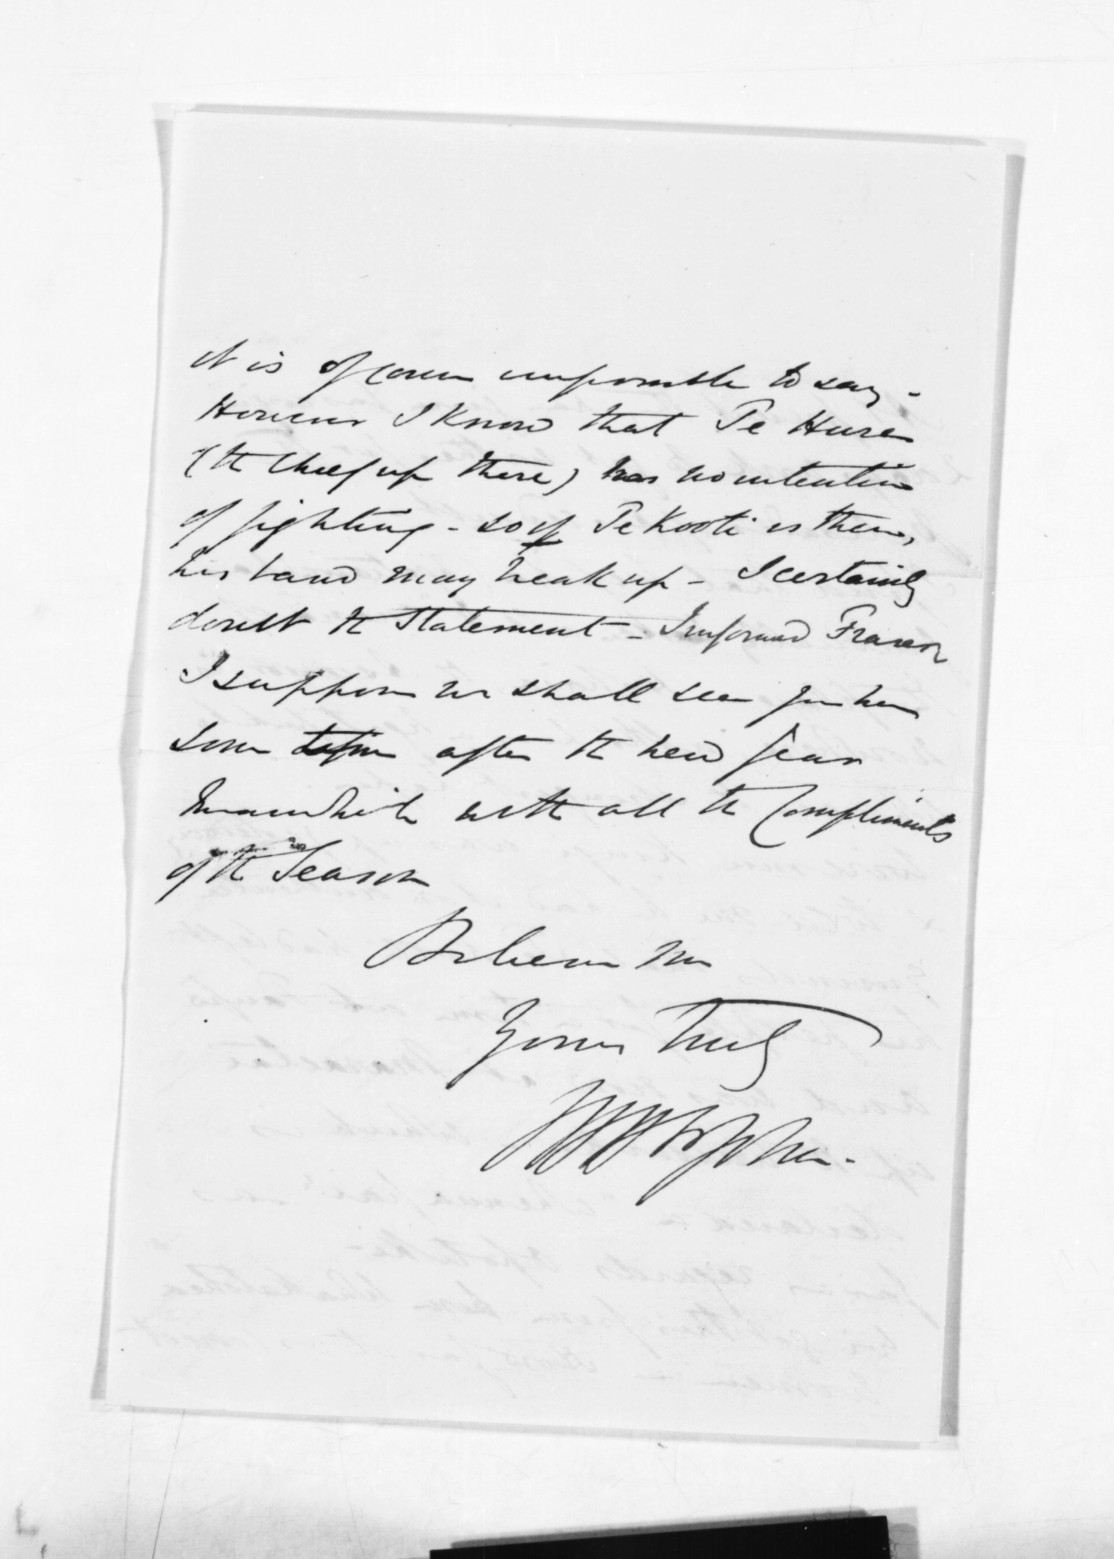 it is of course impossible to say -
However I know that Te Hura
(the Chief up there) has no intention
of fighting - so if Te Kooti is there,
his band may break up - I certainly
doubt the Statement - Informed Fraser
I suppose we shall see you here
some time after the new year
Meanwhile with all the Compliments
of the Season
Believe me
Yours Truly